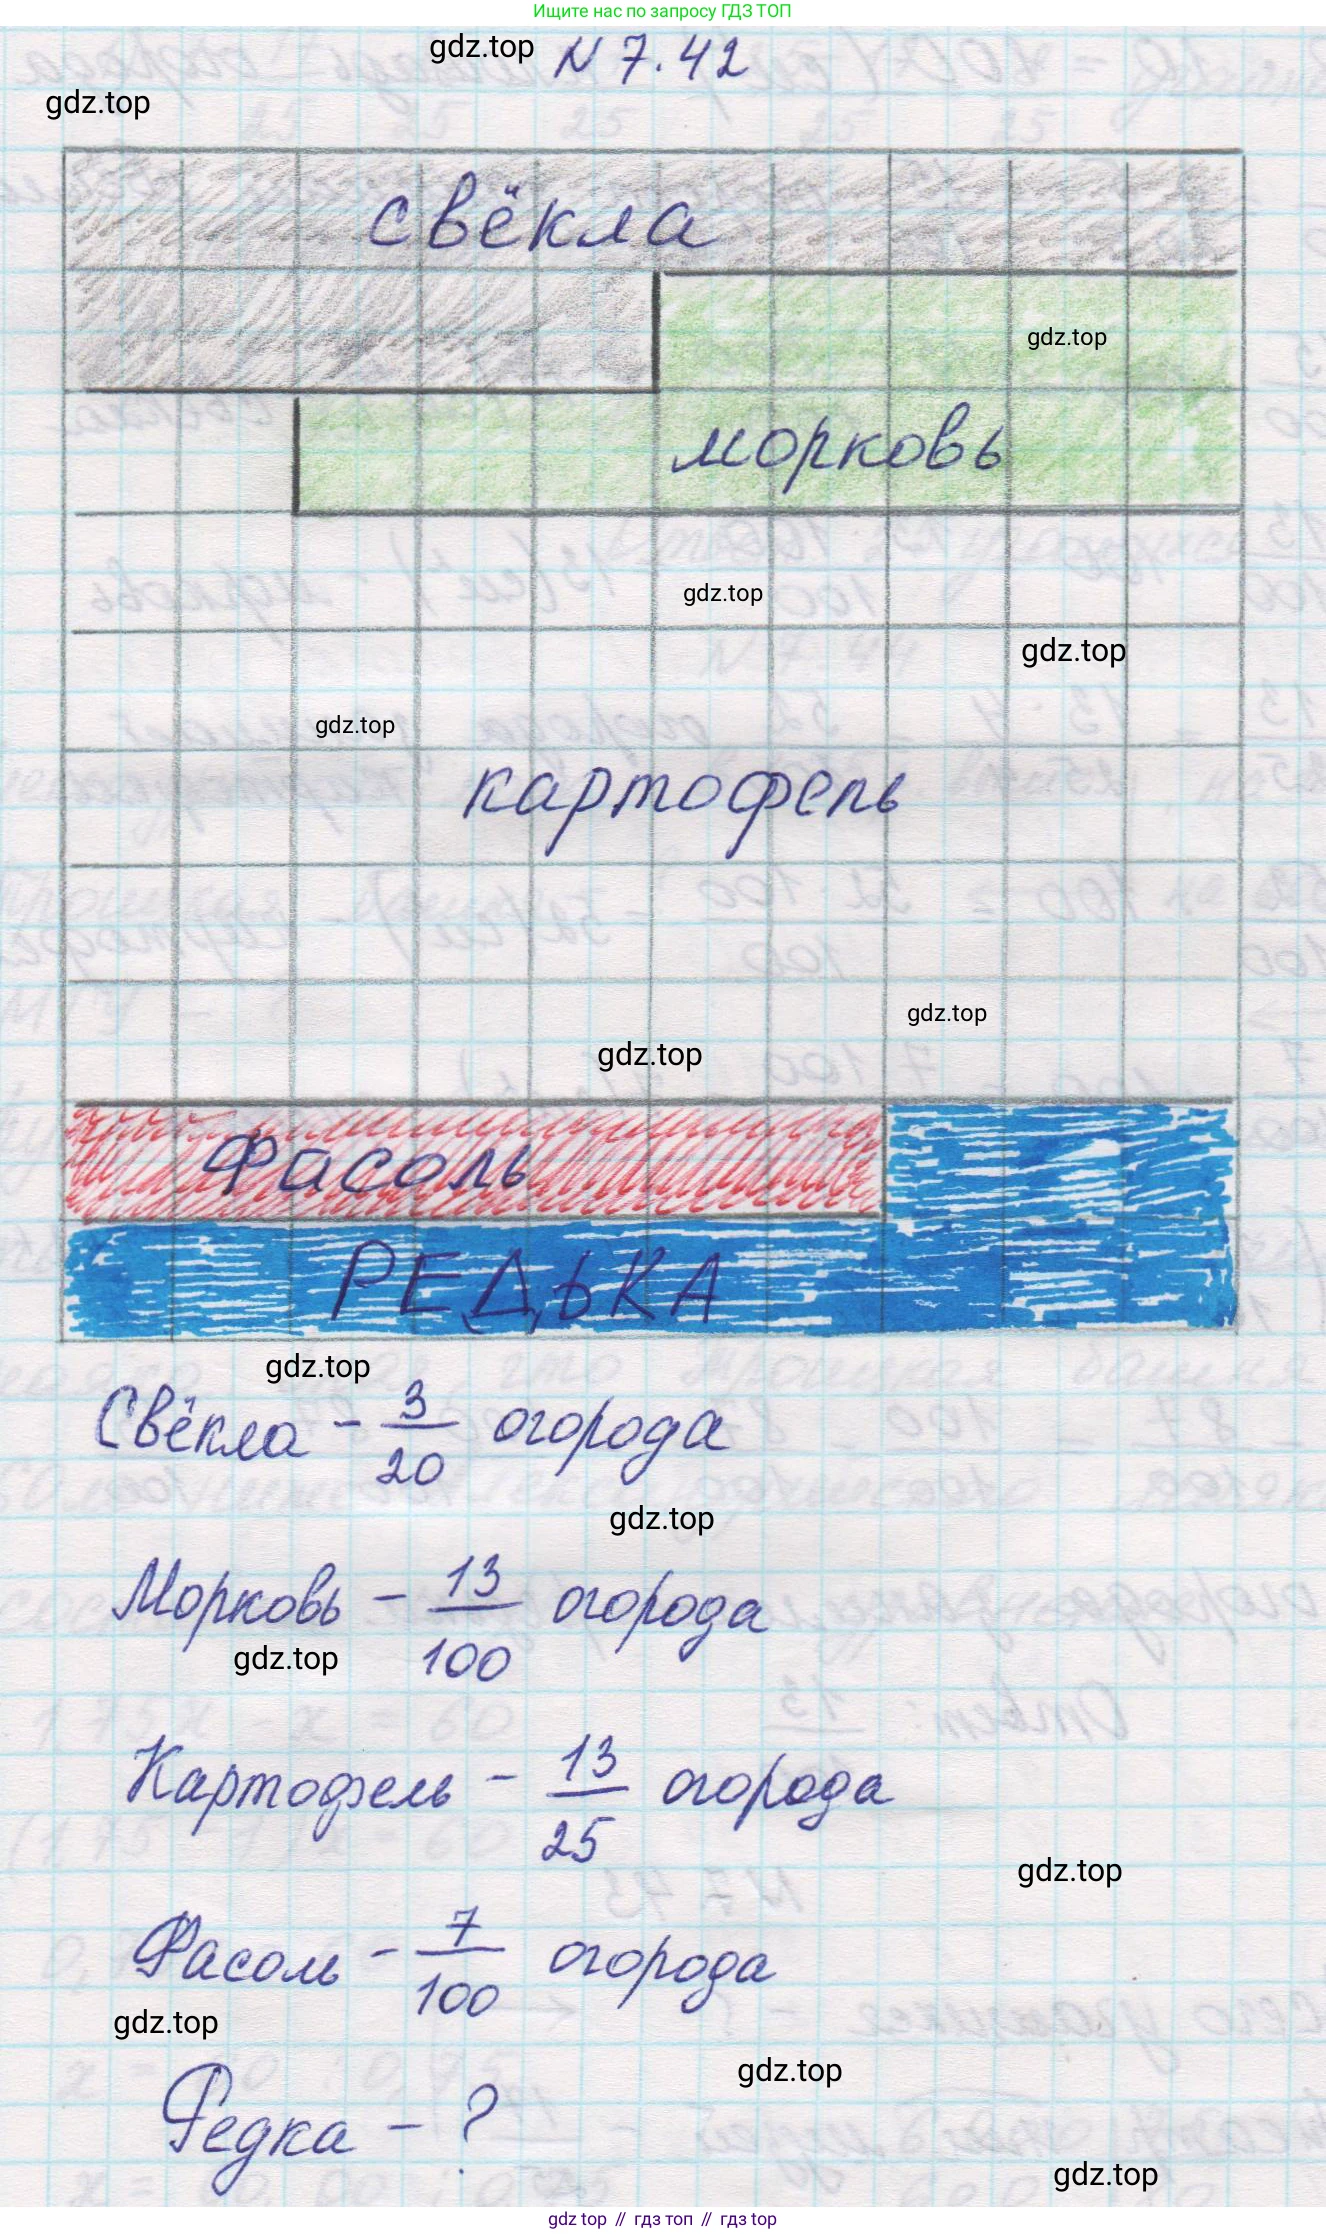 Ищите нас по запросу ГДЗ ТОП
gdz.top
N 7.42
gdz.top
свёкла
gdz.top
морковь
gdz.top
gdz.top
gdz.top
картофель
gdz.top
gdz.top
Фасоль
РЕДЬКА
gdz.top
Свёкла - 3/20 огорода
gdz.top
Морковь - 13/100 огорода
gdz.top
Картофель - 13/25 огорода
gdz.top
Фасоль - 7/100 огорода
gdz.top
gdz.top
Редка - ?
gdz.top
gdz top // гдз топ // gdz top